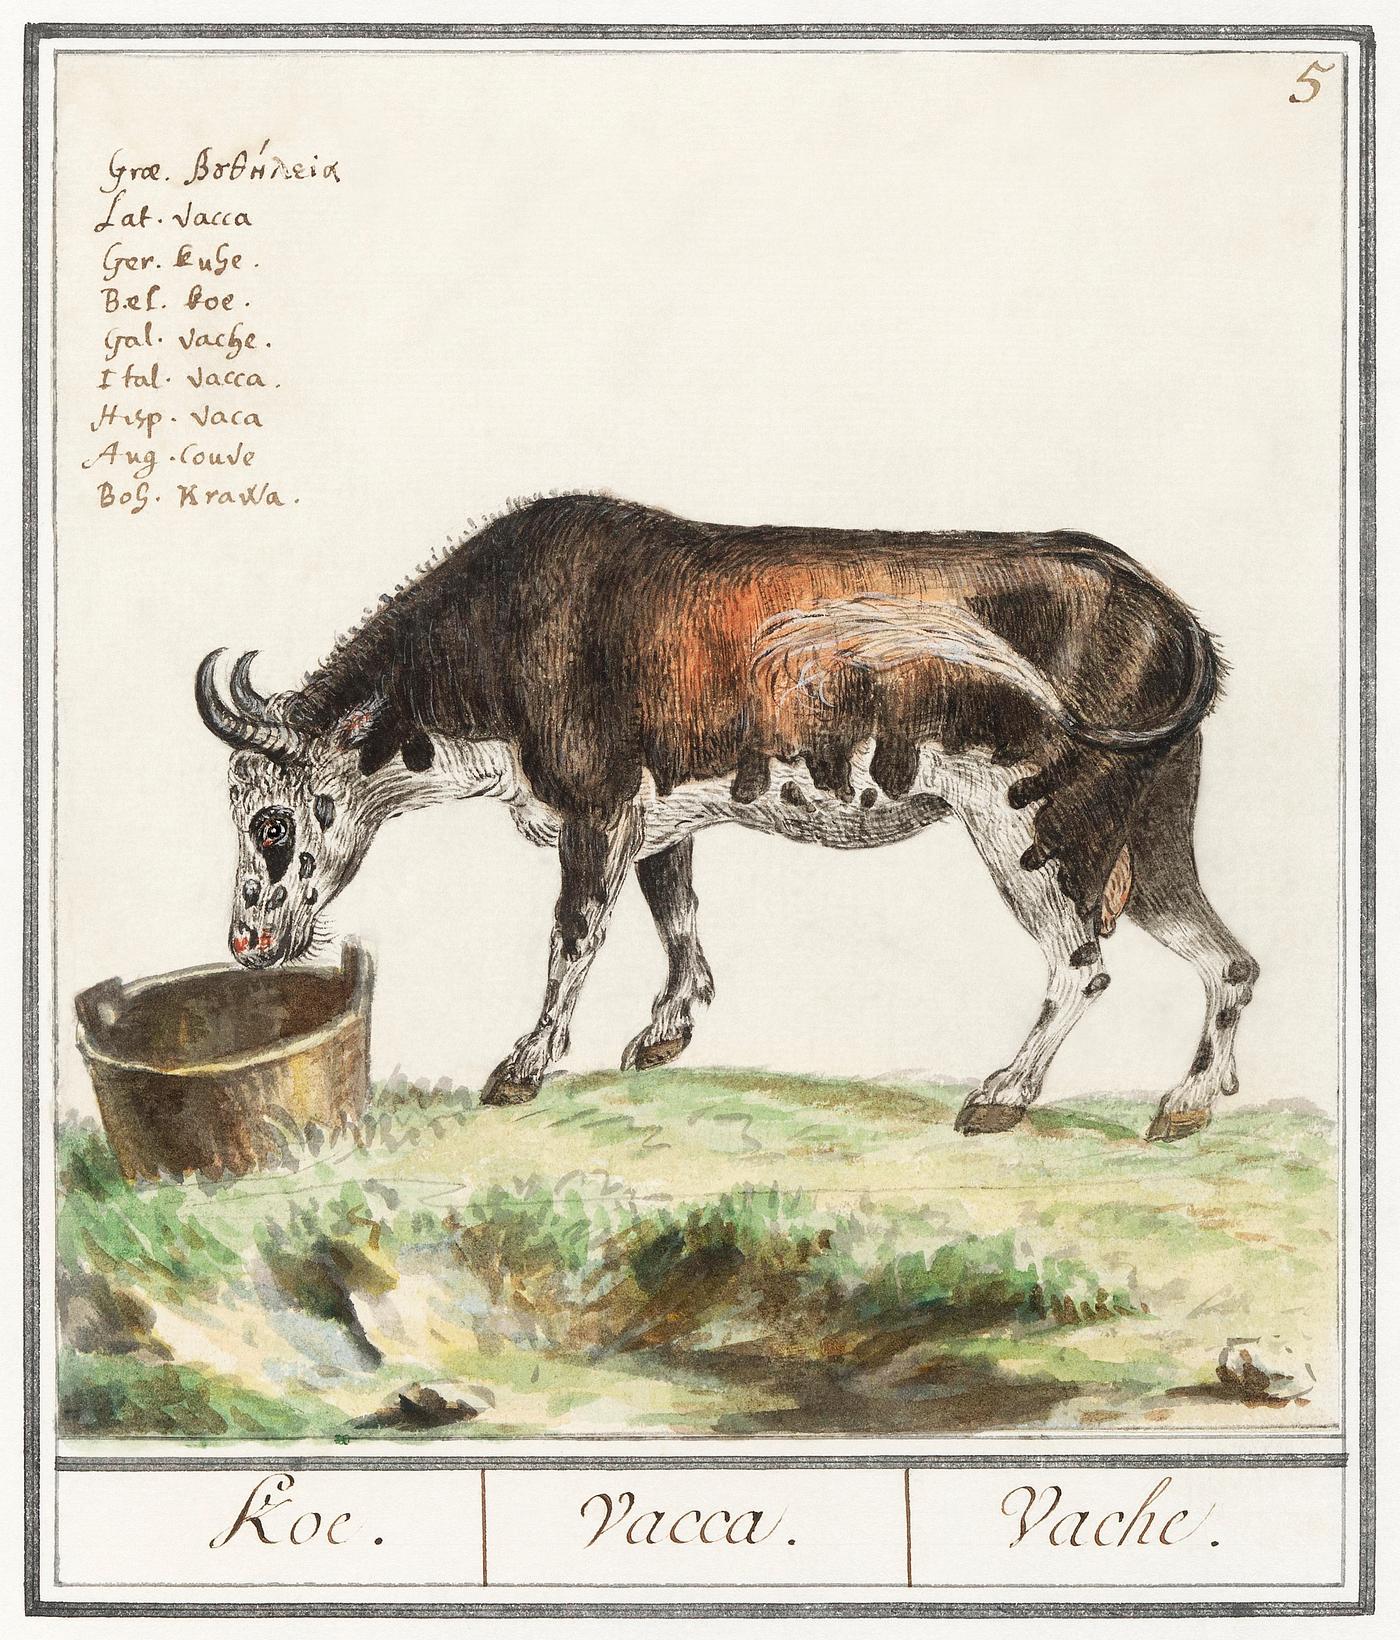 5
Græ. βȣθήλεια
Lat. vacca
Ger. kuhe.
Bæl. koe.
Gal. vache.
Ital. vacca.
Hisp. vaca
Ang. Couve
Boh. Krawa.
Koe. Vacca. Vache.